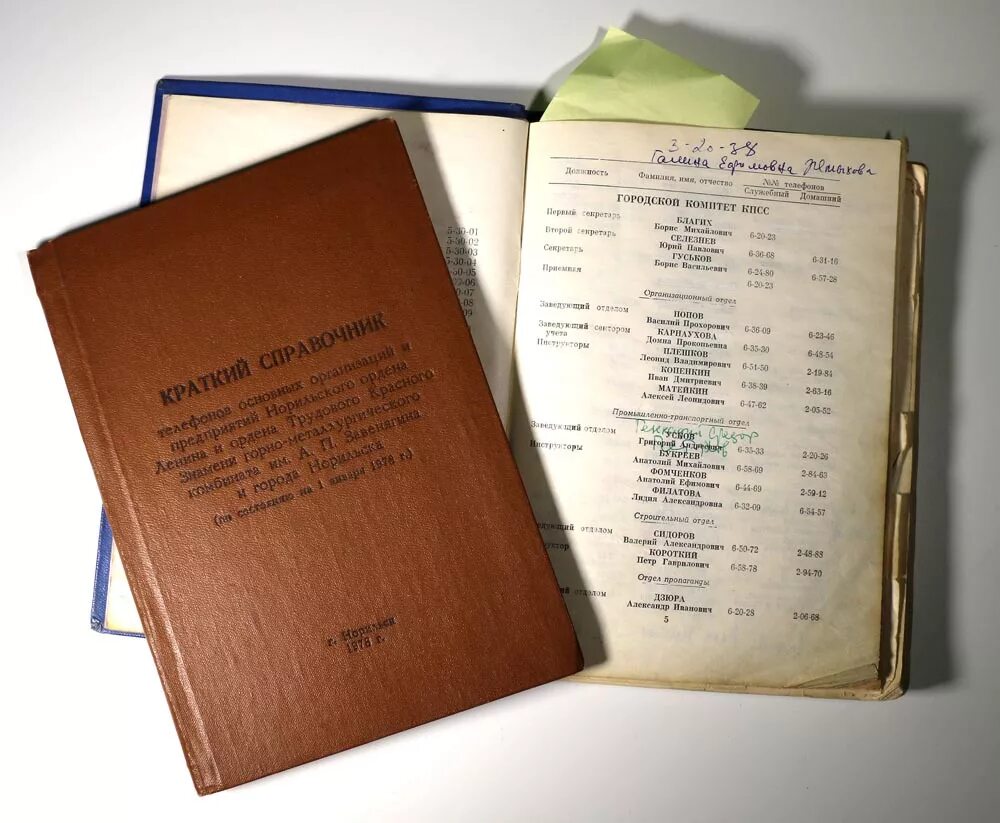 КРАТКИЙ СПРАВОЧНИК
телефонов основных организаций и
предприятий Норильского ордена
Ленина и ордена Трудового Красного
Знамени горно-металлургического
комбината им. А. П. Завенягина
и города Норильска
(по состоянию на 1 января 1976 г.)
г. Норильск
1976 г.
5-30-01
5-30-02
5-30-03
5-30-04
-30-05
-30-06
0-07
-08
09
3-20-38
Галина Ефимовна
Должность Фамилия, имя, отчество №№ телефонов
Служебный Домашний
ГОРОДСКОЙ КОМИТЕТ КПСС
Первый секретарь БЛАГИХ
Борис Михайлович 6-20-23
Второй секретарь СЕЛЕЗНЕВ
Юрий Павлович 6-36-68 6-31-16
Секретарь ГУСЬКОВ
Борис Васильевич 6-24-80 6-57-28
Приемная 6-20-23
Организационный отдел
Заведующий отделом ПОПОВ
Василий Прохорович 6-36-09 6-23-46
Заведующий сектором учета КАРНАУХОВА
Домна Прокопьевна 6-35-30 6-48-54
Инструкторы ПЛЕШКОВ
Леонид Владимирович 6-51-50 2-19-84
КОПЕНКИН
Иван Дмитриевич 6-38-39 2-63-16
МАТЕЙКИН
Алексей Леонидович 6-47-62 2-05-52
Промышленно-транспортный отдел
Заведующий отделом УСКОВ
Григорий Андреевич 6-35-33 2-20-26
Инструкторы БУКРЕЕВ
Анатолий Михайлович 6-58-69 2-84-63
ФОМЧЕНКОВ
Анатолий Ефимович 6-44-69 2-59-12
ФИЛАТОВА
Лидия Александровна 6-32-09 6-54-57
Строительный отдел
ведующий отделом СИДОРОВ
Валерий Александрович 6-50-72 2-48-83
руктор КОРОТКИЙ
Петр Гаврилович 6-58-78 2-94-70
Отдел пропаганды
ий отделом ДЗЮРА
Александр Иванович 6-20-28 2-06-68
5